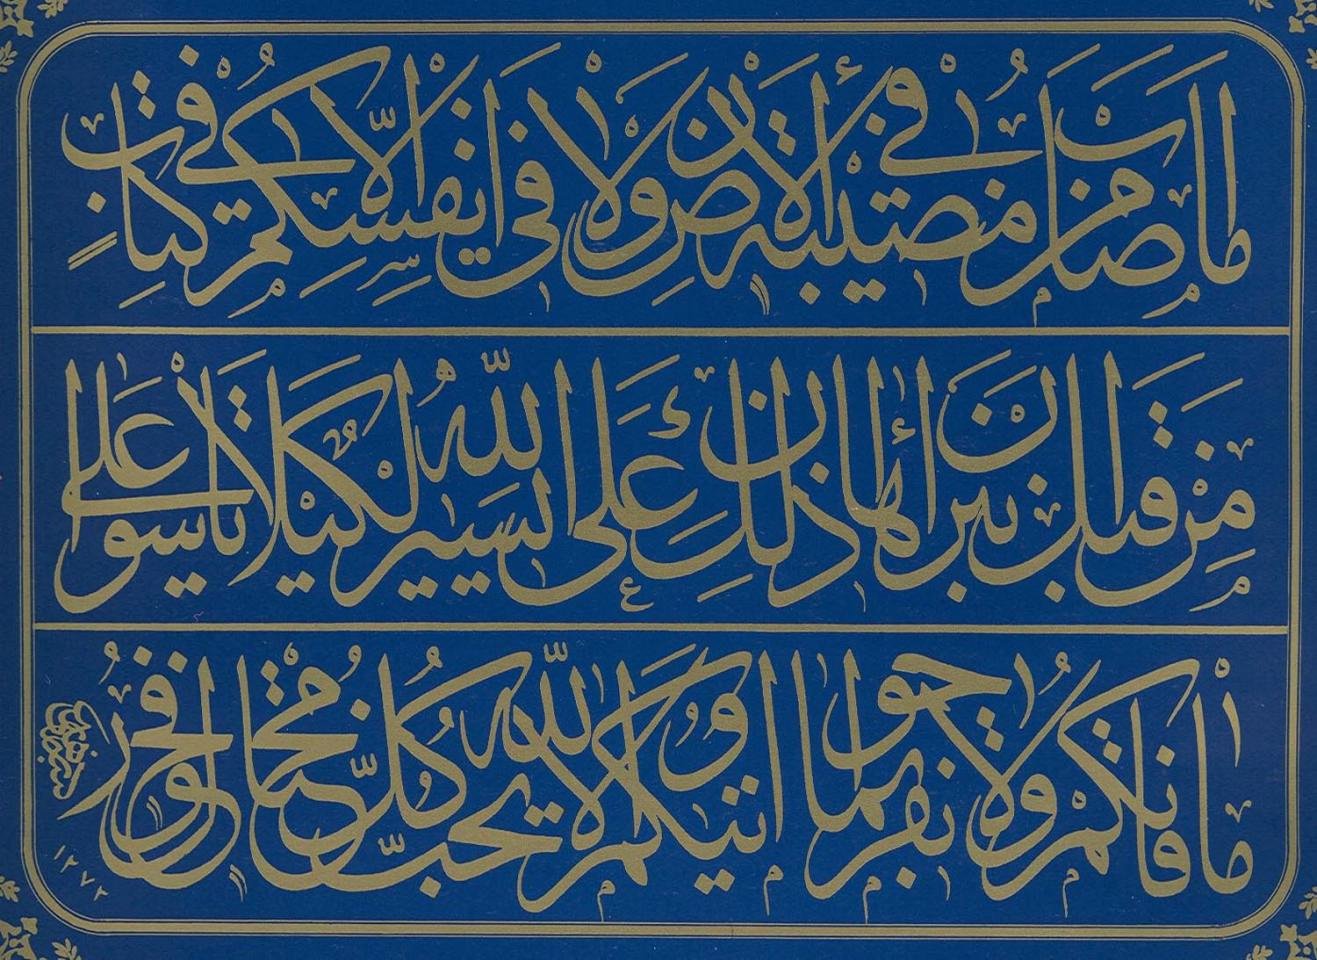 ما اصاب من مصيبة في الارض ولا في انفسكم الا في كتاب
من قبل ان نبراها ان ذلك على الله يسير لكيلا تاسوا على
ما فاتكم ولا تفرحوا بما اتيكم والله لا يحب كل مختال فخور
١٢٧٢